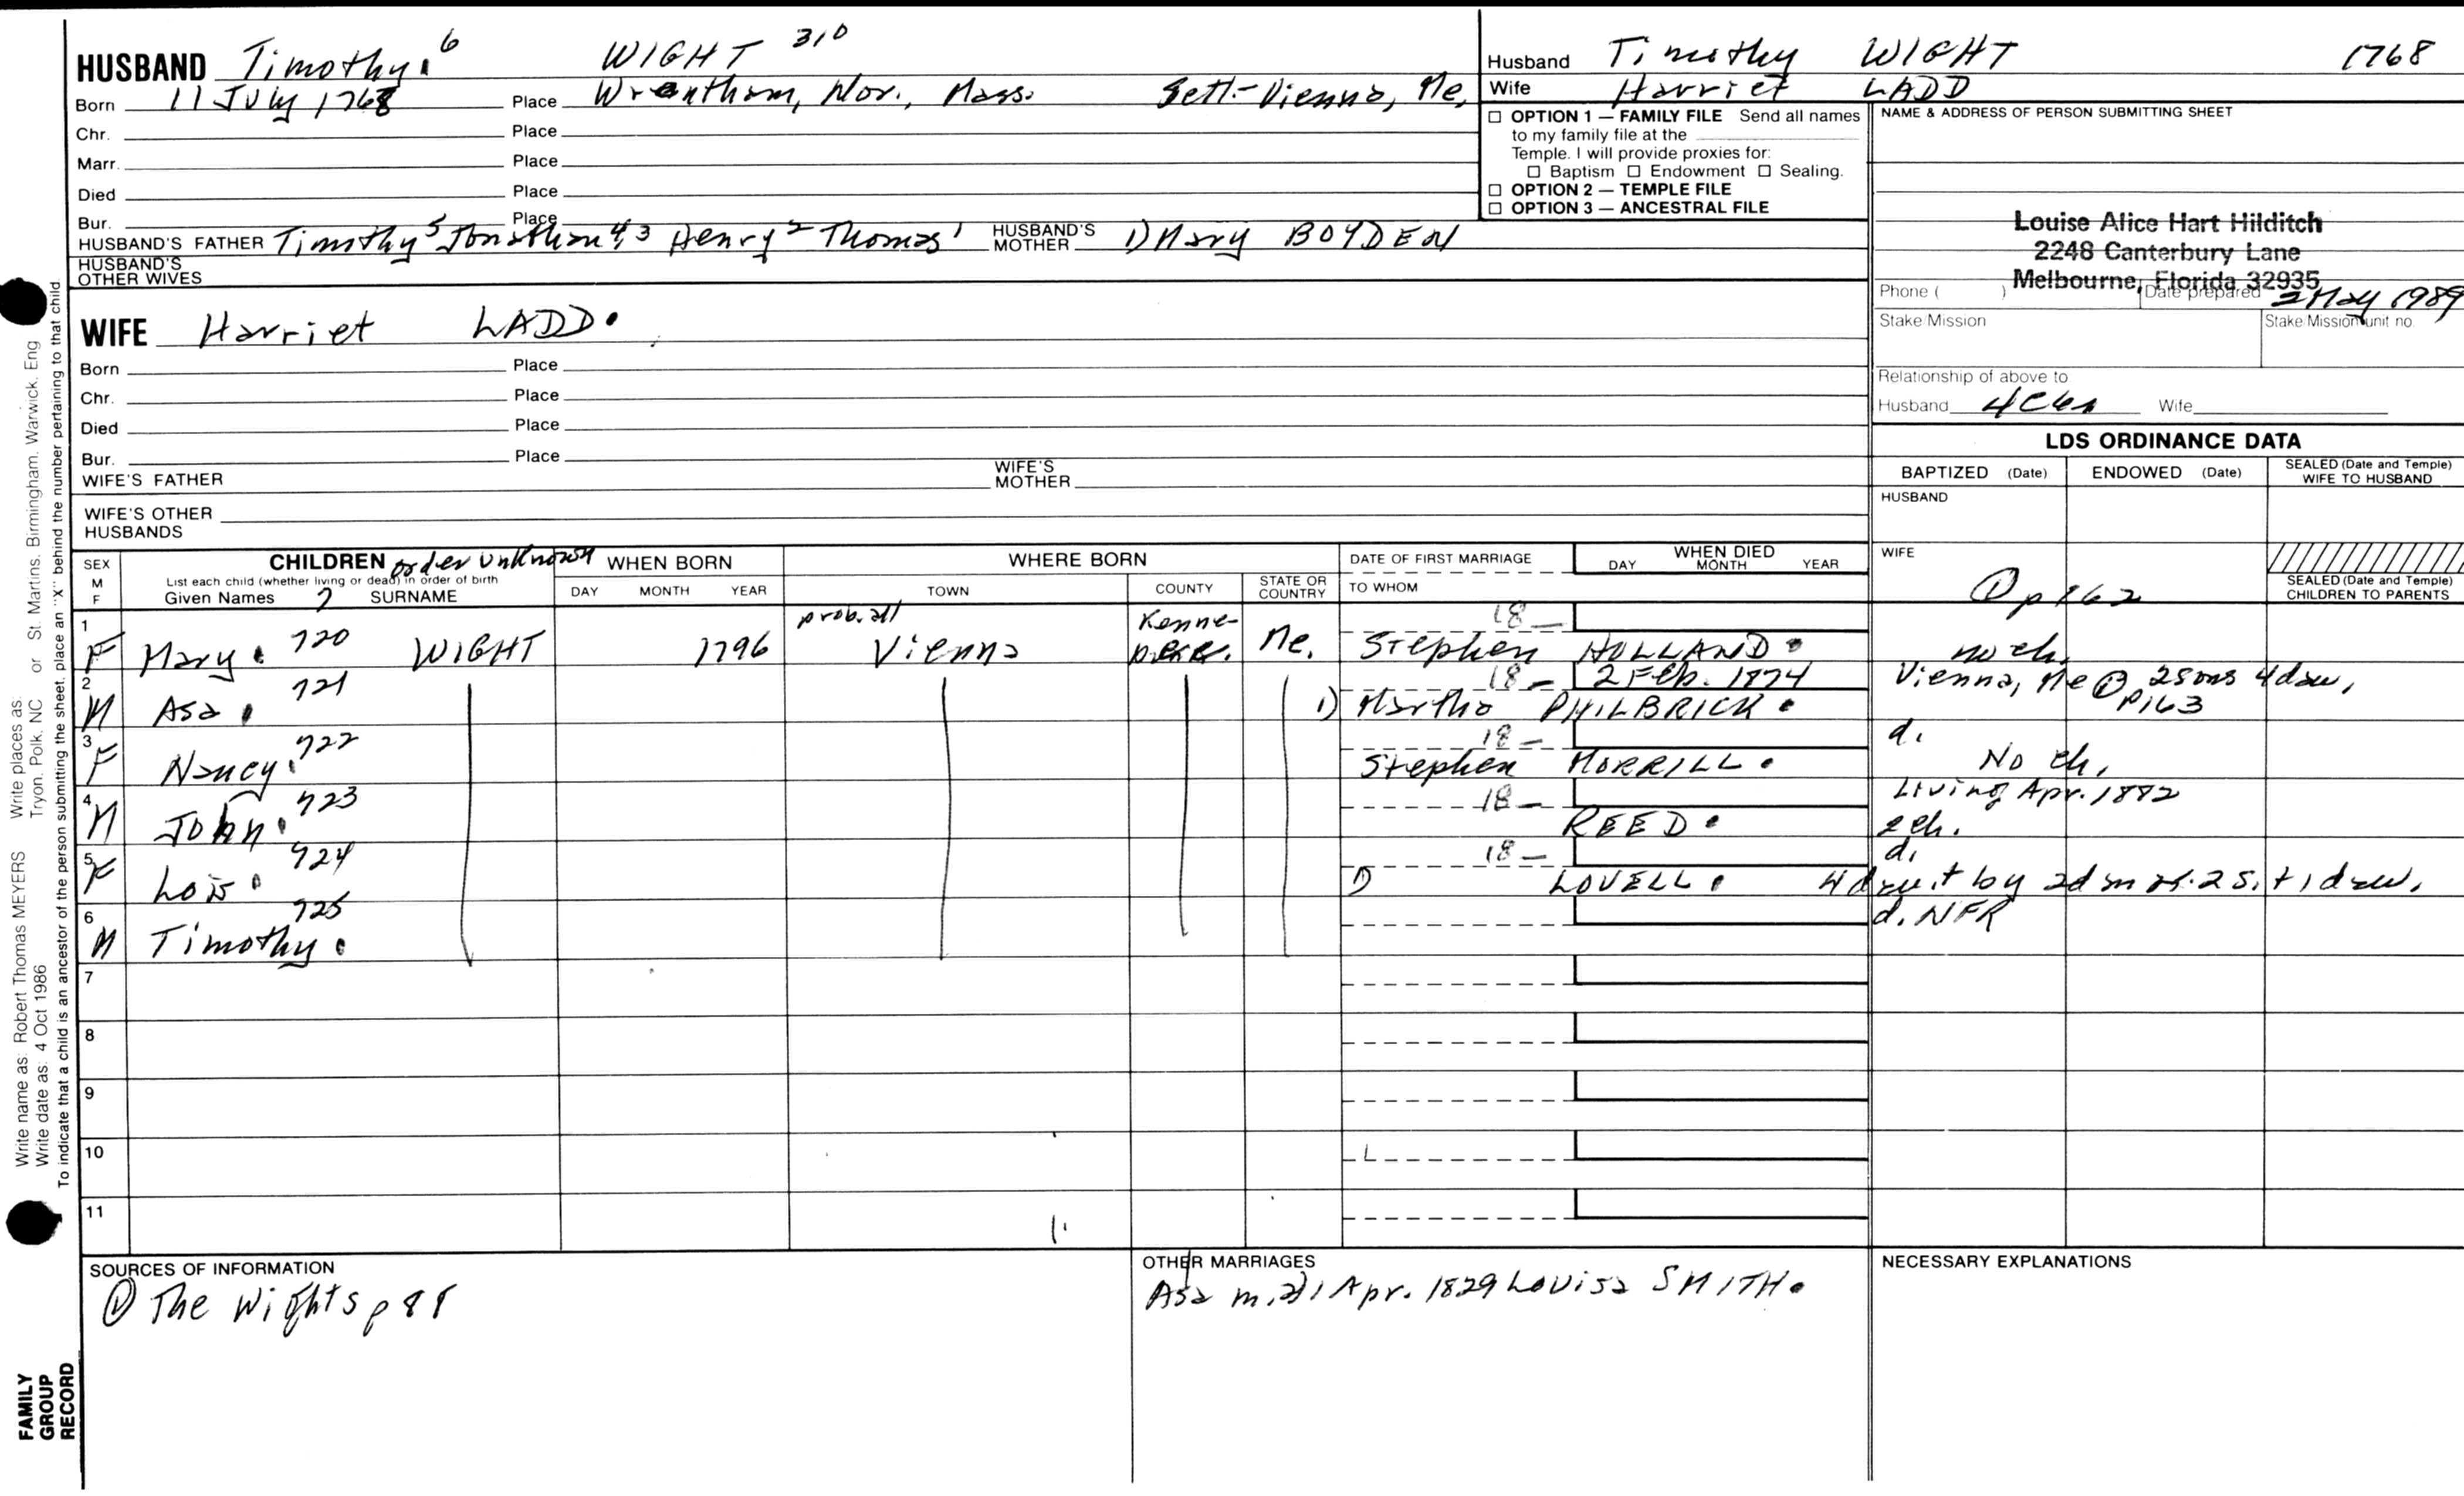 HUSBAND Timothy 6 WIGHT 310
Born 11 July 1768 Place Wrentham, Nor., Mass. Sett.- Vienna, Me.
Chr. Place
Marr. Place
Died Place
Bur. Place
HUSBAND'S FATHER Timothy 5 Jonathan 4,3 Henry 2 Thomas 1 HUSBAND'S MOTHER 1) Mary BOYDEN
HUSBAND'S OTHER WIVES
Husband Timothy WIGHT 1768
Wife Harriet LADD
☐ OPTION 1 — FAMILY FILE Send all names
to my family file at the
Temple. I will provide proxies for:
☐ Baptism ☐ Endowment ☐ Sealing.
☐ OPTION 2 — TEMPLE FILE
☐ OPTION 3 — ANCESTRAL FILE
NAME & ADDRESS OF PERSON SUBMITTING SHEET
Louise Alice Hart Hilditch
2248 Canterbury Lane
Melbourne, Florida 32935
Phone ( ) Date prepared 2 May 1989
Stake/Mission Stake/Mission unit no.
Relationship of above to
Husband Wife
WIFE Harriet LADD.
Born Place
Chr. Place
Died Place
Bur. Place
WIFE'S FATHER WIFE'S MOTHER
WIFE'S OTHER HUSBANDS
LDS ORDINANCE DATA
BAPTIZED (Date) ENDOWED (Date) SEALED (Date and Temple) WIFE TO HUSBAND
HUSBAND
WIFE
① p 162
SEALED (Date and Temple) CHILDREN TO PARENTS
SEX M F
CHILDREN order unknown
List each child (whether living or dead) in order of birth
Given Names 7 SURNAME
WHEN BORN
DAY MONTH YEAR
WHERE BORN
TOWN COUNTY STATE OR COUNTRY
DATE OF FIRST MARRIAGE
TO WHOM
WHEN DIED
DAY MONTH YEAR
1 F Mary. 720 WIGHT 1796 prob. all Vienna Me. 18— Stephen HOLLAND. no ch.
2 M Asa. 721 18— 2 Feb. 1874 Vienna, Me ① 2 sons 4 dau,
1) Martha PHILBRICK. p163
3 F Nancy. 722 18— d.
Stephen MORRILL. No ch,
4 M John. 723 18— Living Apr. 1882
REED. 2 ch.
5 F Lois. 724 18— d.
1) LOVELL. 4 dau. + by 2d mar. 2 s. + 1 dau.
6 M Timothy. 725 d. NFR
7
8
9
10
11
SOURCES OF INFORMATION
① The Wights p 88
OTHER MARRIAGES
Asa m. 2) 1 Apr. 1829 Louisa SMITH.
NECESSARY EXPLANATIONS
Write name as: Robert Thomas MEYERS Write places as: Tryon, Polk, NC or St. Martins, Birmingham, Warwick, Eng
Write date as: 4 Oct 1986
To indicate that a child is an ancestor of the person submitting the sheet, place an "X" behind the number pertaining to that child
FAMILY
GROUP
RECORD